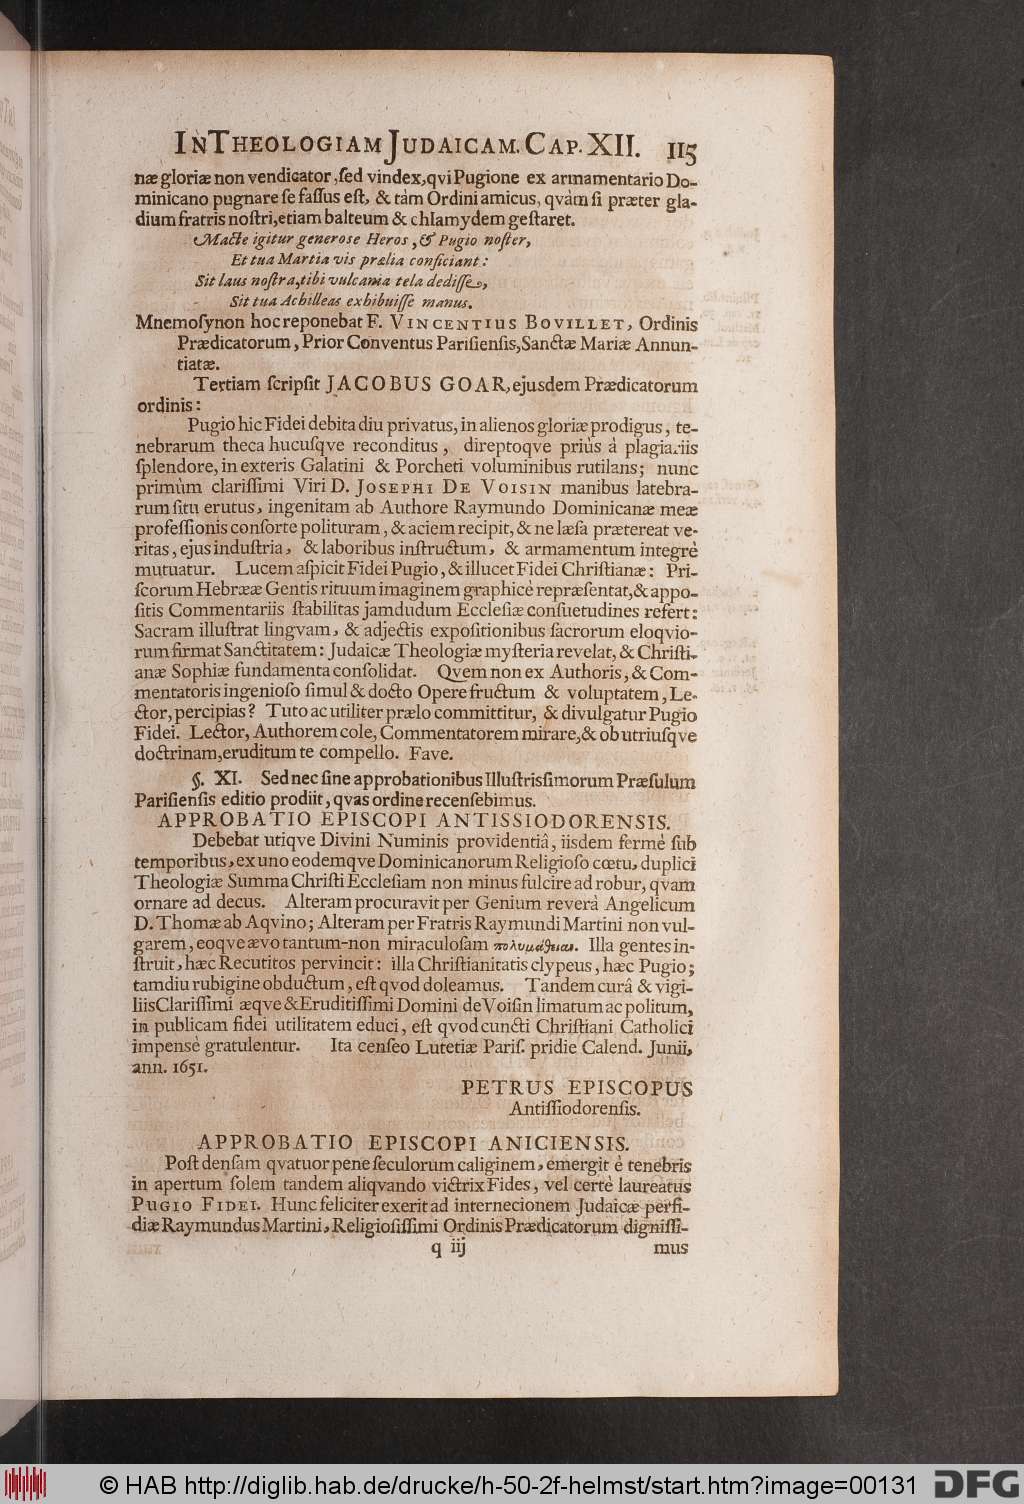 IN THEOLOGIAM JUDAICAM. CAP. XII. 115
næ gloriæ non vendicator, ſed vindex, qvi Pugione ex armamentario Do-
minicano pugnare ſe faſſus eſt, & tàm Ordini amicus, qvàm ſi præter gla-
dium fratris noſtri, etiam balteum & chlamydem geſtaret.
Macte igitur generoſe Heros, & Pugio noſter,
Et tua Martia vis prælia conficiant:
Sit laus noſtra, tibi vulcania tela dediſſe,
Sit tua Achilleas exhibuiſſe manus.
Mnemoſynon hoc reponebat F. VINCENTIUS BOVILLET, Ordinis
Prædicatorum, Prior Conventus Pariſienſis, Sanctæ Mariæ Annun-
tiatæ.
Tertiam ſcripſit JACOBUS GOAR, ejusdem Prædicatorum
ordinis:
Pugio hic Fidei debita diu privatus, in alienos gloriæ prodigus, te-
nebrarum theca hucuſqve reconditus, direptoqve priùs à plagiariis
ſplendore, in exteris Galatini & Porcheti voluminibus rutilans; nunc
primùm clariſſimi Viri D. JOSEPHI DE VOISIN manibus latebra-
rum ſitu erutus, ingenitam ab Authore Raymundo Dominicanæ meæ
profeſſionis conſorte polituram, & aciem recipit, & ne læſa prætereat ve-
ritas, ejus induſtria, & laboribus inſtructum, & armamentum integrè
mutuatur. Lucem aſpicit Fidei Pugio, & illucet Fidei Chriſtianæ: Pri-
ſcorum Hebrææ Gentis rituum imaginem graphicè repræſentat, & appo-
ſitis Commentariis ſtabilitas jamdudum Eccleſiæ conſuetudines refert:
Sacram illuſtrat lingvam, & adjectis expoſitionibus ſacrorum eloqvio-
rum firmat Sanctitatem: Judaicæ Theologiæ myſteria revelat, & Chriſti-
anæ Sophiæ fundamenta conſolidat. Qvem non ex Authoris, & Com-
mentatoris ingenioſo ſimul & docto Opere fructum & voluptatem, Le-
ctor, percipias? Tuto ac utiliter prælo committitur, & divulgatur Pugio
Fidei. Lector, Authorem cole, Commentatorem mirare, & ob utriuſqve
doctrinam, eruditum te compello. Fave.
§. XI. Sed nec ſine approbationibus Illuſtrisſimorum Præſulum
Pariſienſis editio prodiit, qvas ordine recenſebimus.
APPROBATIO EPISCOPI ANTISSIODORENSIS.
Debebat utiqve Divini Numinis providentiâ, iisdem fermè ſub
temporibus, ex uno eodemqve Dominicanorum Religioſo cœtu, duplici
Theologiæ Summa Chriſti Eccleſiam non minus fulcire ad robur, qvam
ornare ad decus. Alteram procuravit per Genium reverà Angelicum
D. Thomæ ab Aqvino; Alteram per Fratris Raymundi Martini non vul-
garem, eoqve ævo tantum-non miraculoſam πολυμάθειαν. Illa gentes in-
ſtruit, hæc Recutitos pervincit: illa Chriſtianitatis clypeus, hæc Pugio;
tamdiu rubigine obductum, eſt qvod doleamus. Tandem curâ & vigi-
liis Clariſſimi æqve & Eruditiſſimi Domini de Voiſin limatum ac politum,
in publicam fidei utilitatem educi, eſt qvod cuncti Chriſtiani Catholici
impensè gratulentur. Ita cenſeo Lutetiæ Pariſ. pridie Calend. Junii,
ann. 1651.
PETRUS EPISCOPUS
Antiſſiodorenſis.
APPROBATIO EPISCOPI ANICIENSIS.
Poſt denſam qvatuor pene ſeculorum caliginem, emergit è tenebris
in apertum ſolem tandem aliqvando victrix Fides, vel certè laureatus
PUGIO FIDEI. Hunc feliciter exerit ad internecionem Judaicæ perfi-
diæ Raymundus Martini, Religioſiſſimi Ordinis Prædicatorum digniſſi-
q iij mus
© HAB http://diglib.hab.de/drucke/h-50-2f-helmst/start.htm?image=00131 DFG